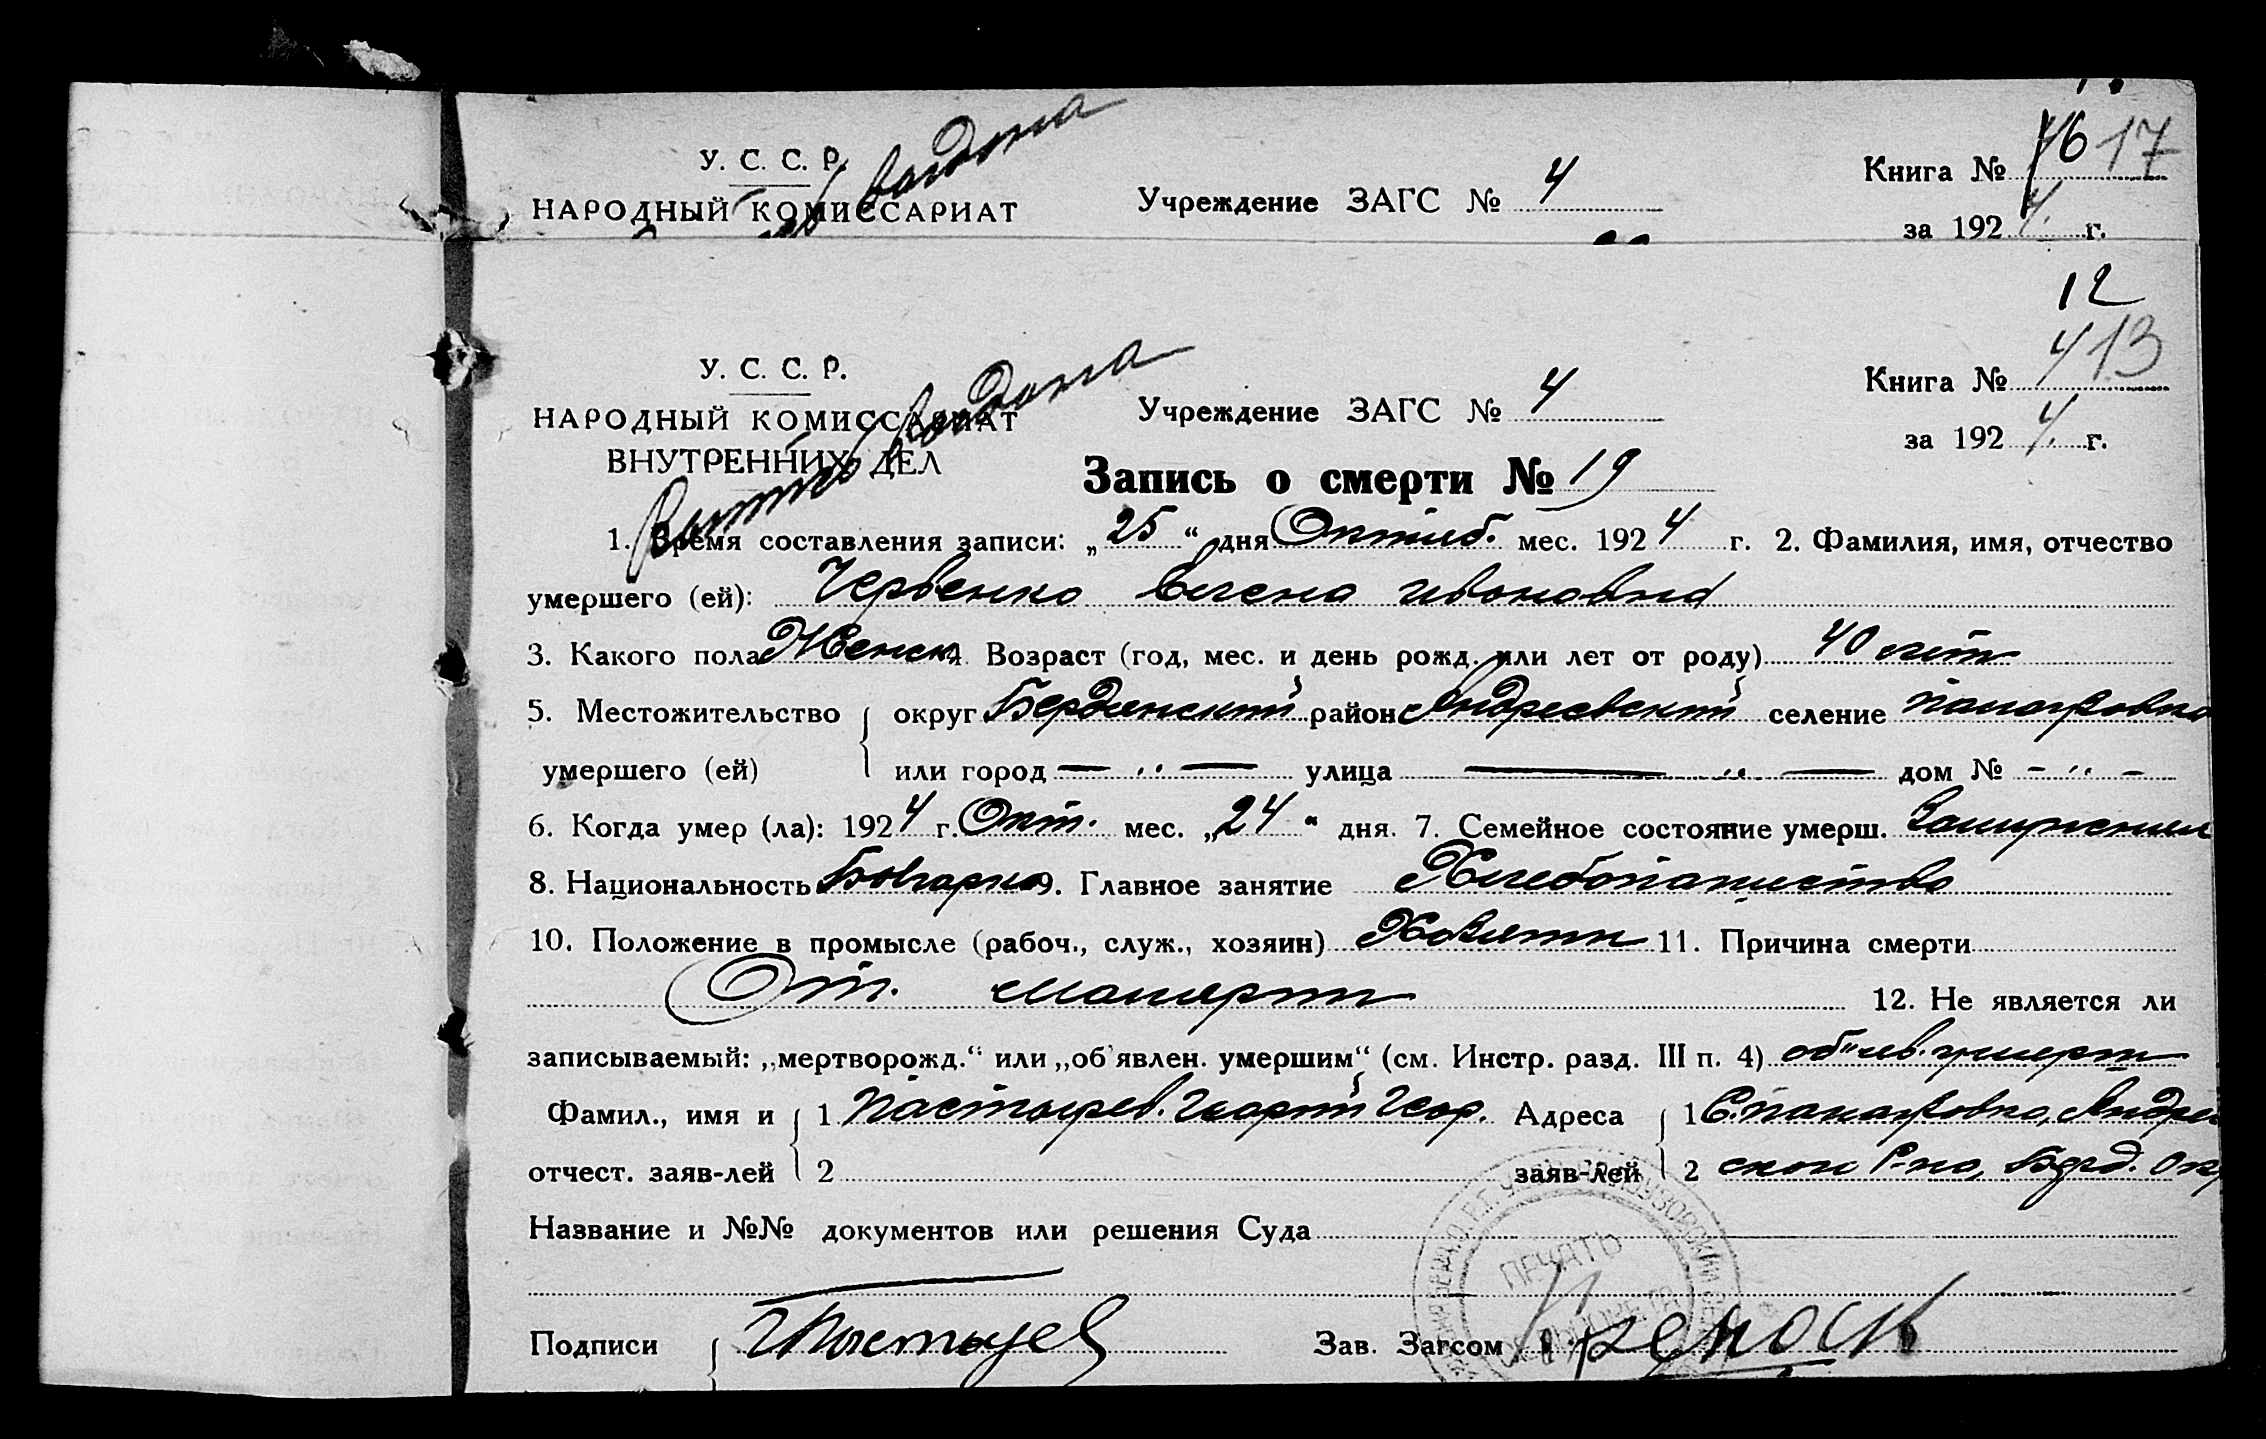 У. С. С. Р.
НАРОДНЫЙ КОМИССАРИАТ
Учреждение ЗАГС № 4
Книга № 17
за 1924 г.
12
У. С. С. Р.
НАРОДНЫЙ КОМИССАРИАТ
ВНУТРЕННИХ ДЕЛ
Учреждение ЗАГС № 4
Книга № 13
за 1924 г.
Запись о смерти № 19
1. Время составления записи: „25“ дня Октяб. мес. 1924 г. 2. Фамилия, имя, отчество
умершего (ей): Червенко Елена Ивановна
3. Какого пола Женск. 4. Возраст (год, мес. и день рожд. или лет от роду) 40 лет
5. Местожительство округ Бердянский район Андреевский селение
умершего (ей) или город — „ — улица — „ — дом № - „ -
6. Когда умер (ла): 1924 г. Окт. мес. „24“ дня. 7. Семейное состояние умерш.
8. Национальность Болгарка 9. Главное занятие Хлебопашество
10. Положение в промысле (рабоч., служ., хозяин) 11. Причина смерти
От.
12. Не является ли
записываемый: „мертворожд.“ или „об'явлен. умершим“ (см. Инстр. разд. III п. 4)
Фамил., имя и 1 Адреса 1 Андре
отчест. заяв-лей 2 заяв-лей 2 Р-на, Берд. Окр
Название и №№ документов или решения Суда
ПЕЧАТЬ
Подписи Зав. Загсом